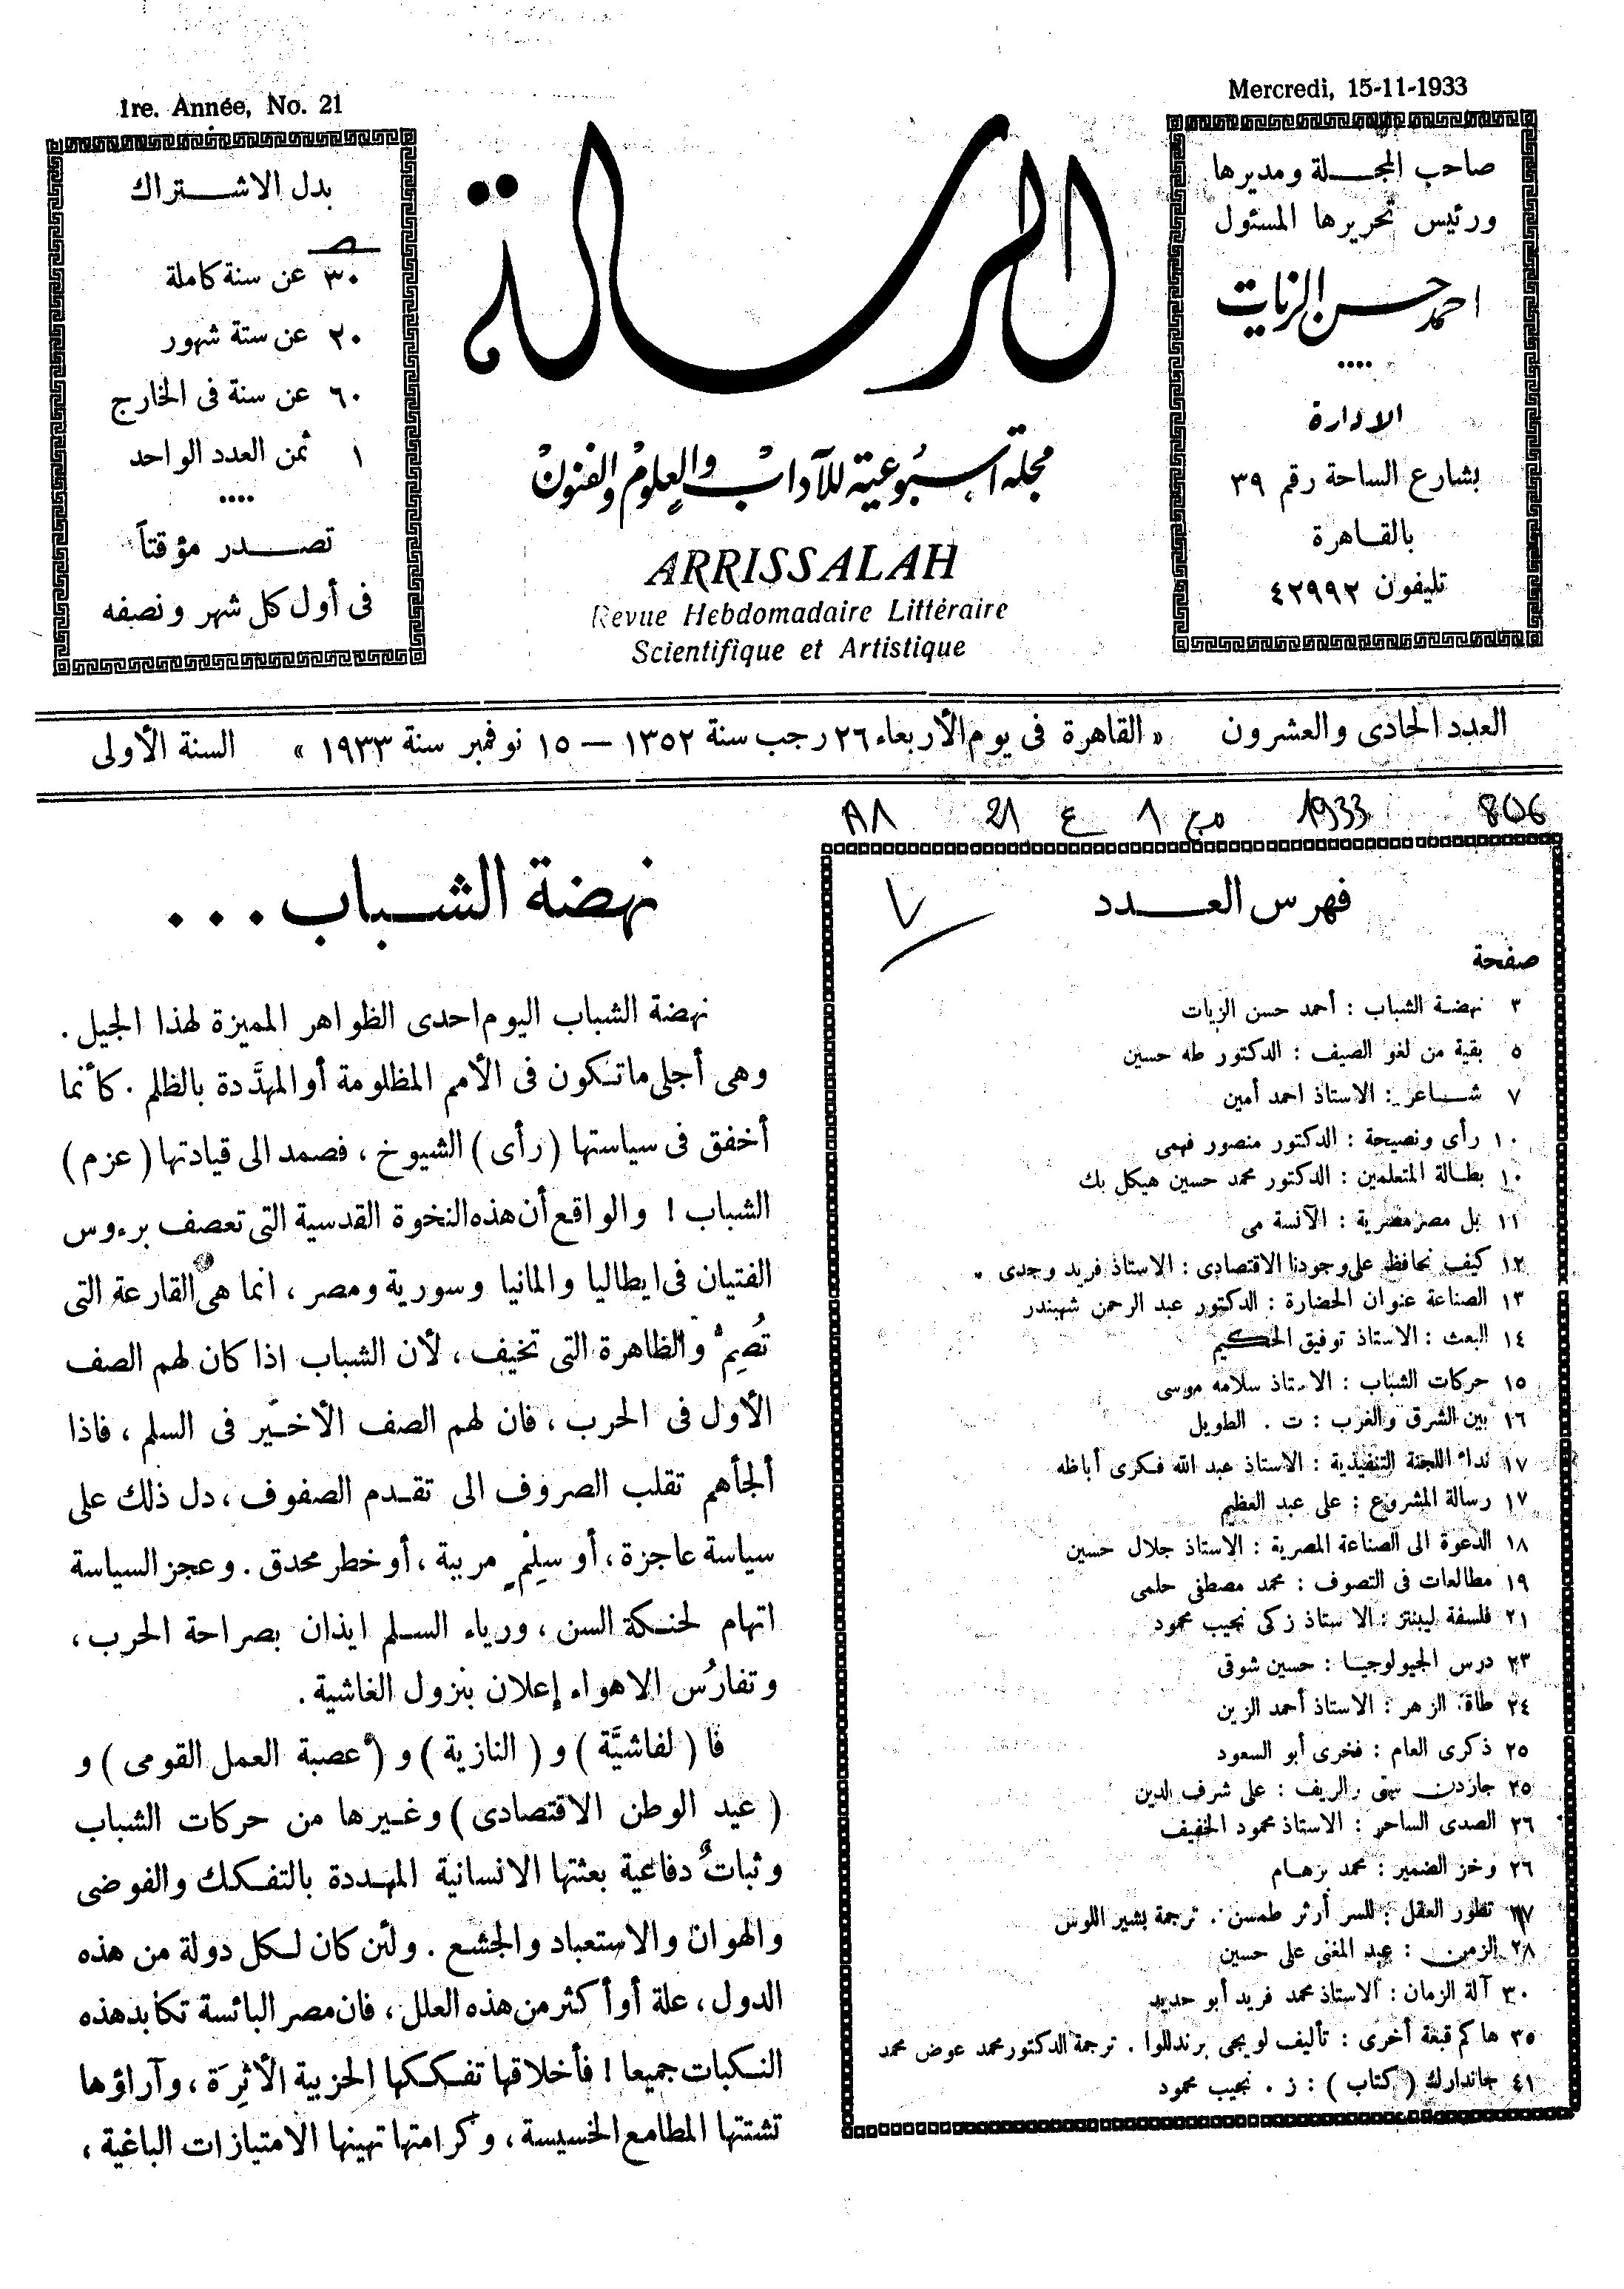 Mercredi, 15-11-1933
1re. Année, No. 21
صاحب المجلة ومديرها
ورئيس تحريرها المسئول
احمد حسن الزيات
الادارة
بشارع الساحة رقم ٣٩
بالقاهرة
تليفون ٤٢٩٩٢
الرسالة
مجلة أسبوعية للآداب والعلوم والفنون
ARRISSALAH
Revue Hebdomadaire Littéraire
Scientifique et Artistique
بدل الاشتراك
ص
٣٠ عن سنة كاملة
٢٠ عن ستة شهور
٦٠ عن سنة فى الخارج
١ ثمن العدد الواحد
تصدر مؤقتاً
فى أول كل شهر ونصفه
العدد الحادى والعشرون « القاهرة فى يوم الأربعاء ٢٦ رجب سنة ١٣٥٢ — ١٥ نوفمبر سنة ١٩٣٣ » السنة الأولى
806 1933 مج 1 ع 21
فهرس العدد
صفحة
٣ نهضة الشباب : أحمد حسن الزيات
٥ بقية من لغو الصيف : الدكتور طه حسين
٧ شاعر : الاستاذ احمد أمين
١٠ رأى ونصيحة : الدكتور منصور فهمى
١٠ بطالة المتعلمين : الدكتور محمد حسين هيكل بك
١١ بل مصر مصرية : الآنسة مى
١٢ كيف نحافظ على وجودنا الاقتصادى : الاستاذ فريد وجدى .
١٣ الصناعة عنوان الحضارة : الدكتور عبد الرحمن شهبندر
١٤ البعث : الاستاذ توفيق الحكيم
١٥ حركات الشباب : الاستاذ سلامه موسى
١٦ بين الشرق والغرب : ت . الطويل
١٧ نداء اللجنة التنفيذية : الاستاذ عبد الله فكرى أباظه
١٧ رسالة المشروع : على عبد العظيم
١٨ الدعوة الى الصناعة المصرية : الاستاذ جلال حسين
١٩ مطالعات فى التصوف : محمد مصطفى حلمى
٢١ فلسفة ليبنتز : الاستاذ زكى نجيب محمود
٢٣ درس الجيولوجيا : حسين شوقى
٢٤ طاقة الزهر : الاستاذ أحمد الزين
٢٥ ذكرى العام : فخرى أبو السعود
٢٥ جاردن سيتى والريف : على شرف الدين
٢٦ الصدى الساحر : الاستاذ محمود الخفيف
٢٦ وخز الضمير : محمد برهام
٢٧ تطور العقل : للسر أرثر طمسن . ترجمة بشير اللوس
٢٨ الزمن : عبد المغنى على حسين
٣٠ آلة الزمان : الاستاذ محمد فريد أبو حديد
٣٥ هاكم قبعة أخرى : تأليف لويجى برندللوا . ترجمة الدكتور محمد عوض محمد
٤١ جاندارك ( كتاب ) : ز . نجيب محمود
نهضة الشباب . . .
نهضة الشباب اليوم احدى الظواهر المميزة لهذا الجيل .
وهى أجلى ما تكون فى الأمم المظلومة أو المهدَّدة بالظلم . كأنما
أخفق فى سياستها ( رأى ) الشيوخ ، فصمد الى قيادتها ( عزم )
الشباب ! والواقع أن هذه النخوة القدسية التى تعصف برءوس
الفتيان فى ايطاليا والمانيا وسورية ومصر ، انما هى القارعة التى
تُصِمُّ والظاهرة التى تخيف ، لأن الشباب اذا كان لهم الصف
الأول فى الحرب ، فان لهم الصف الأخير فى السلم ، فاذا
ألجأهم تقلب الصروف الى تقدم الصفوف ، دل ذلك على
سياسة عاجزة ، أو سِلْمٍ مريبة ، أو خطر محدق . وعجز السياسة
اتهام لحنكة السن ، ورياء السلم ايذان بصراحة الحرب ،
وتفارُس الاهواء إعلان بنزول الغاشية .
فا ( لفاشيَّة ) و ( النازية ) و ( عصبة العمل القومى ) و
( عيد الوطن الاقتصادى ) وغيرها من حركات الشباب
وثباتٌ دفاعية بعثتها الانسانية المهددة بالتفكك والفوضى
والهوان والاستعباد والجشع . ولئن كان لكل دولة من هذه
الدول ، علة أو أكثر من هذه العلل ، فان مصر البائسة تكابد هذه
النكبات جميعا ! فأخلاقها تفككها الحزبية الأثِرَة ، وآراؤها
تشتتها المطامع الخسيسة ، وكرامتها تهينها الامتيازات الباغية ،